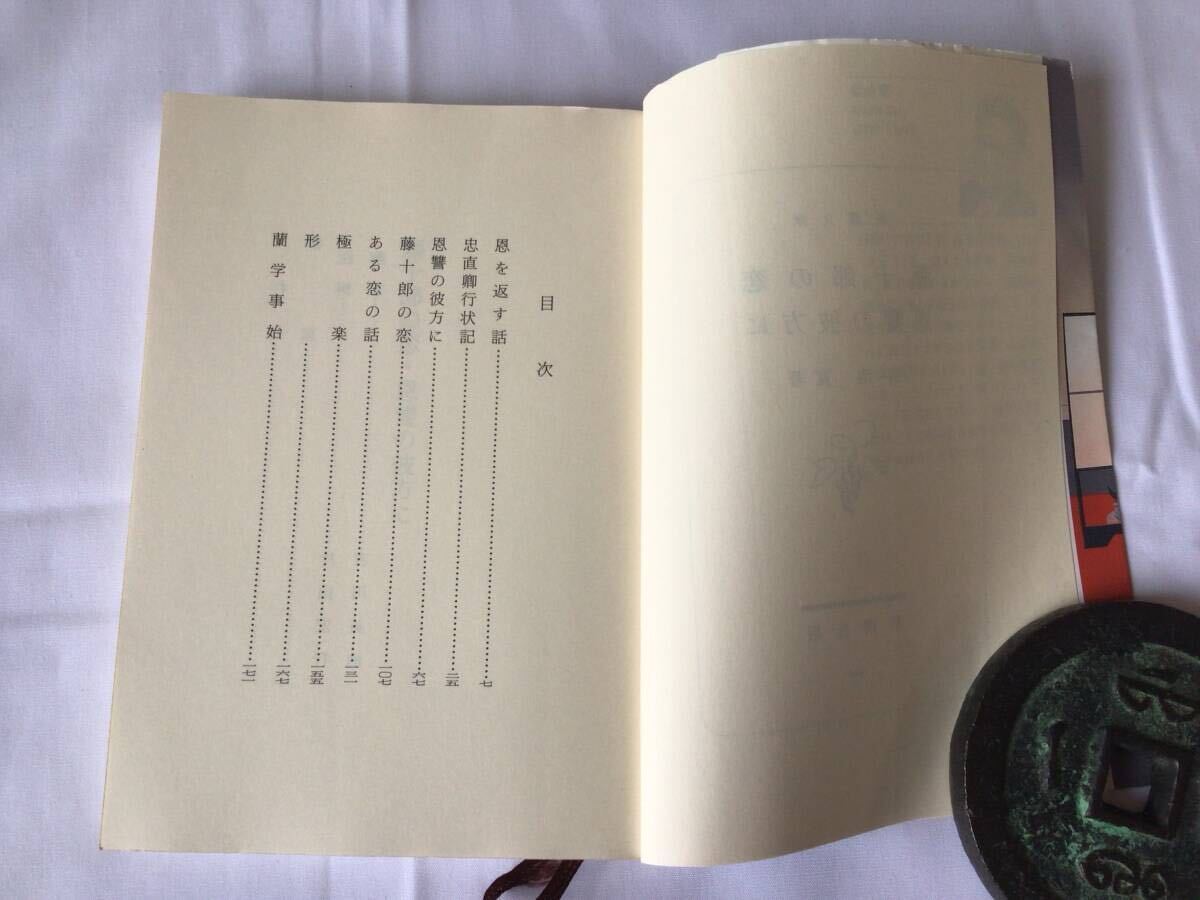 目次
恩を返す話……七
忠直卿行状記……二五
恩讐の彼方に……六七
藤十郎の恋……一〇七
ある恋の話……一三一
極楽……一五五
形……一六七
蘭学事始……一七一